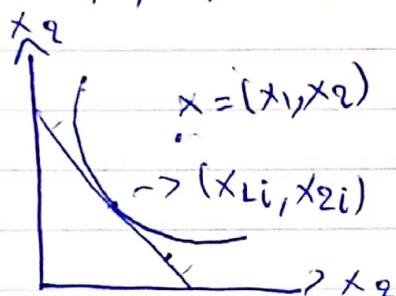 x2
x = (x1, x2)
-> (x1i, x2i)
x2